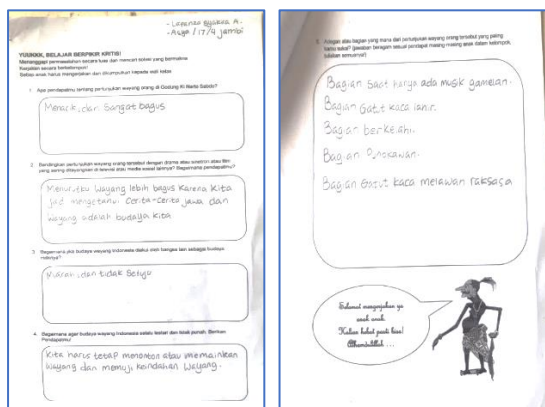 - Lorenzo A -
- Asya / 17/4 jambi
YUUKKK, BELAJAR BERPIKIR KRITIS!
Menanggapi permasalahan secara luas dan mencari solusi yang bermakna
Kerjakan secara berkelompok!
Setiap anak harus mengerjakan dan dikumpulkan kepada wali kelas
1. Apa pendapatmu tentang pertunjukan wayang orang di Gedung Ki Narto Sabdo?
Menarik, dan Sangat bagus
2. Bandingkan pertunjukan wayang orang tersebut dengan drama atau sinetron atau film yang sering ditayangkan di televisi atau media sosial lainnya? Bagaimana pendapatmu?
Menurutku Wayang lebih bagus karena kita
jadi mengetahui cerita-cerita jawa dan
wayang adalah budaya kita
3. Bagaimana jika budaya wayang Indonesia diakui oleh bangsa lain sebagai budaya
Marah, dan tidak Setuju
4. Bagaimana agar budaya wayang Indonesia selalu lestari dan tidak punah. Berikan
Pendapatmu!
Kita harus tetap menonton atau memainkan
Wayang dan memuji keindahan Wayang.
5. Adegan atau bagian yang mana dari pertunjukan wayang orang tersebut yang paling
kamu sukai? (jawaban beragam sesuai pendapat masing-masing anak dalam kelompok,
tuliskan semuanya!)
Bagian Saat hanya ada musik gamelan.
Bagian Gatut kaca lahir.
Bagian berkelahi.
Bagian Punokawan.
Bagian Gatut kaca melawan raksasa
Selamat mengerjakan ya
anak anak
Kalian hebat pasti bisa!
Alhamdulillah ...